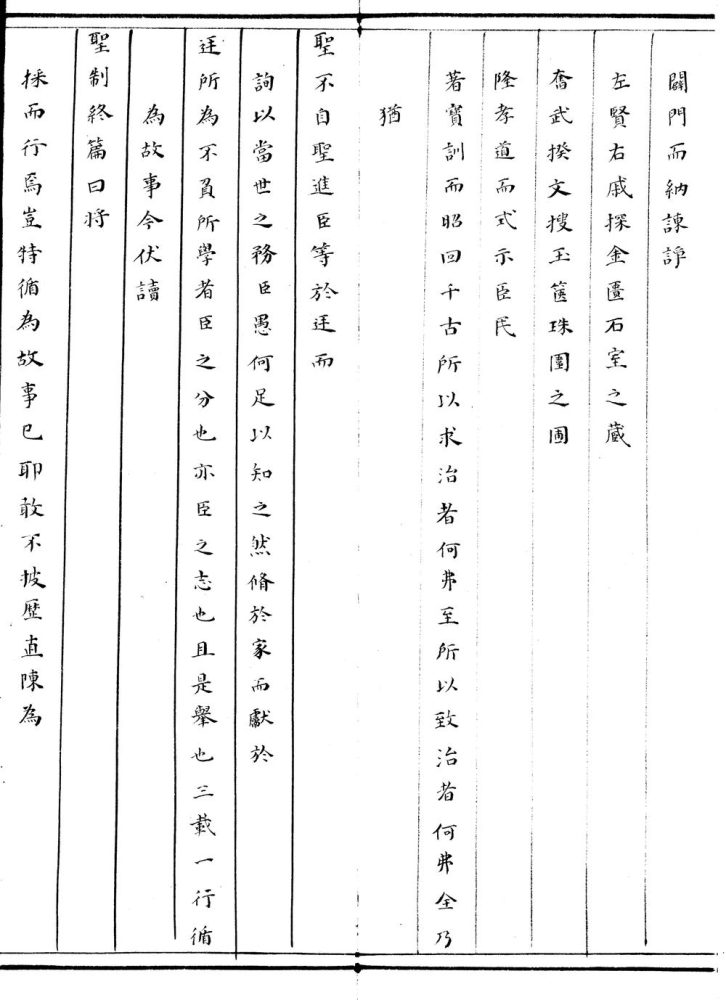 闢門而納諫諍
左賢右戚探金匱石室之藏
奮武揆文搜玉篋珠圍之圃
隆孝道而式示臣民
著寳訓而昭回千古所以求治者何弗至所以致治者何弗全乃
猶
聖不自聖進臣等於廷而
詢以當世之務臣愚何足以知之然脩於家而獻於
廷所為不負所學者臣之分也亦臣之志也且是舉也三載一行循
為故事今伏讀
聖制終篇曰将
採而行焉豈特循為故事已耶敢不披歷直陳為